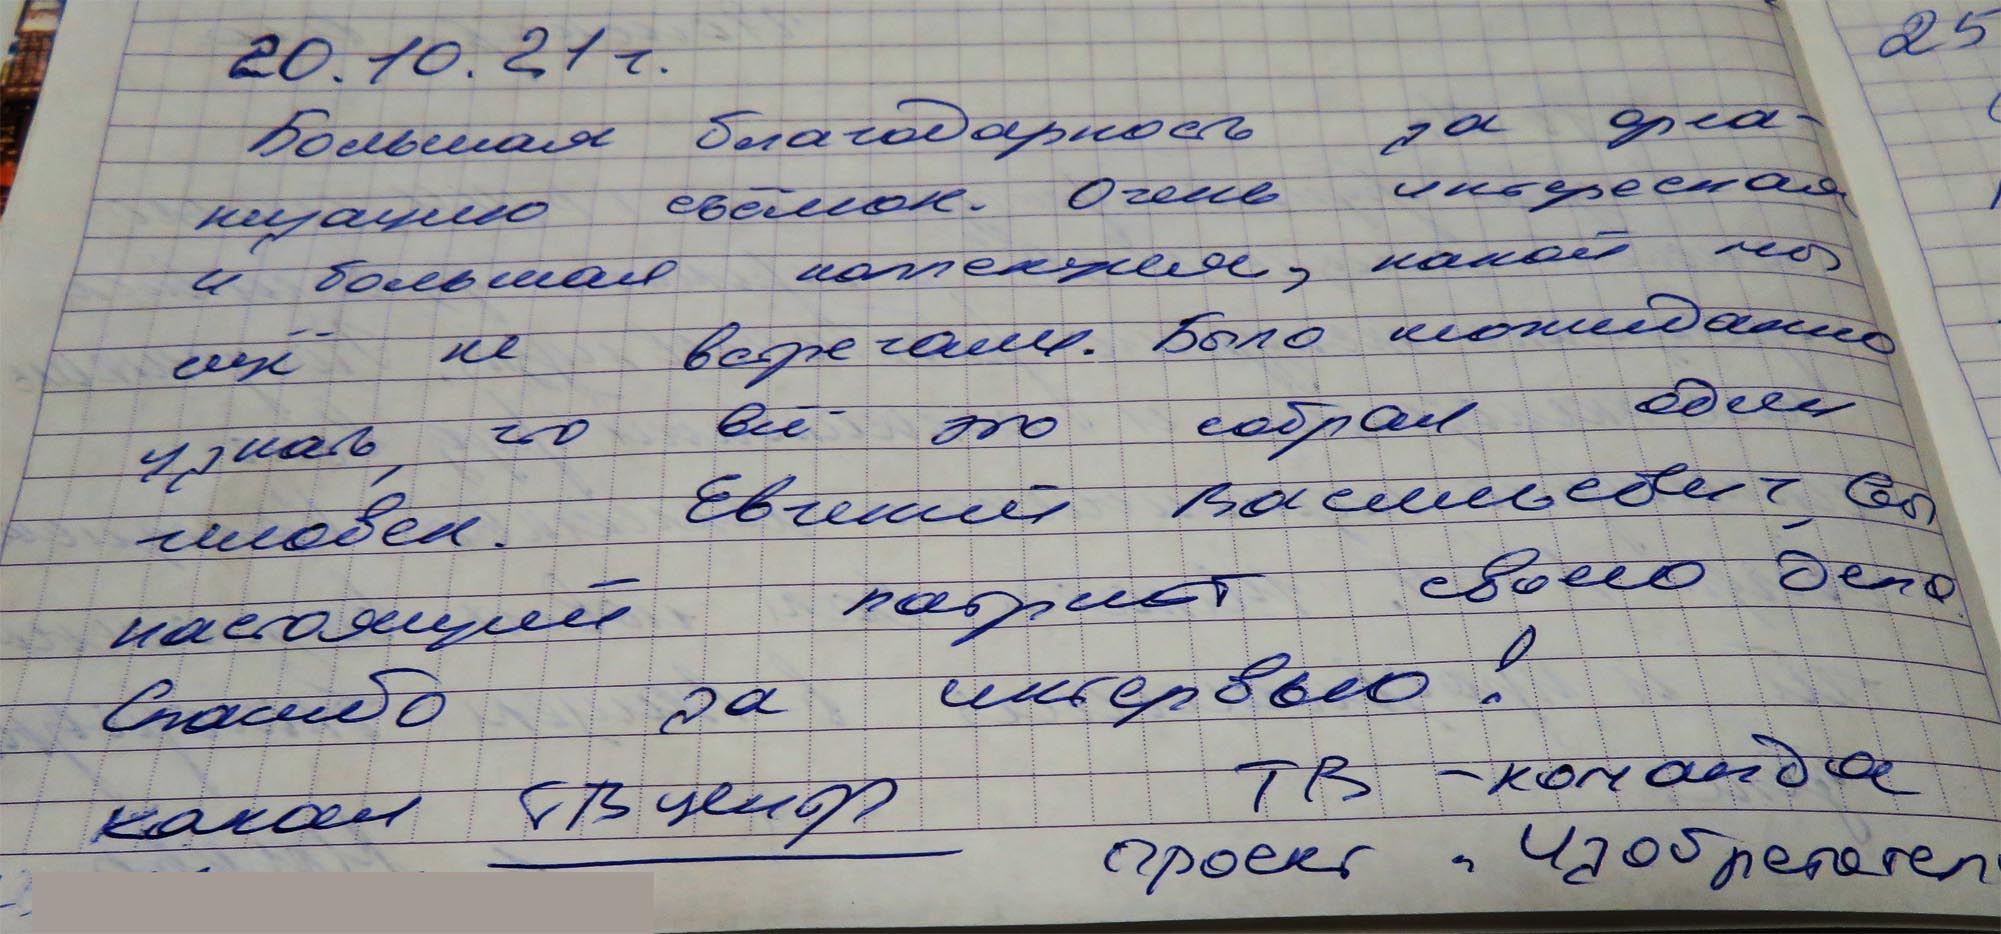 20.10.21 г.
Большая благодарность за орга-
низацию съёмок. Очень интересная
и большая коллекция, какой мы
ещё не встречали. Было неожиданно
узнать, что всё это собрал один
человек. Евгений Васильевич, Вы
настоящий патриот своего дела.
Спасибо за интервью!
ТВ - команда
канал ТВ центр
проект "Изобретател
25